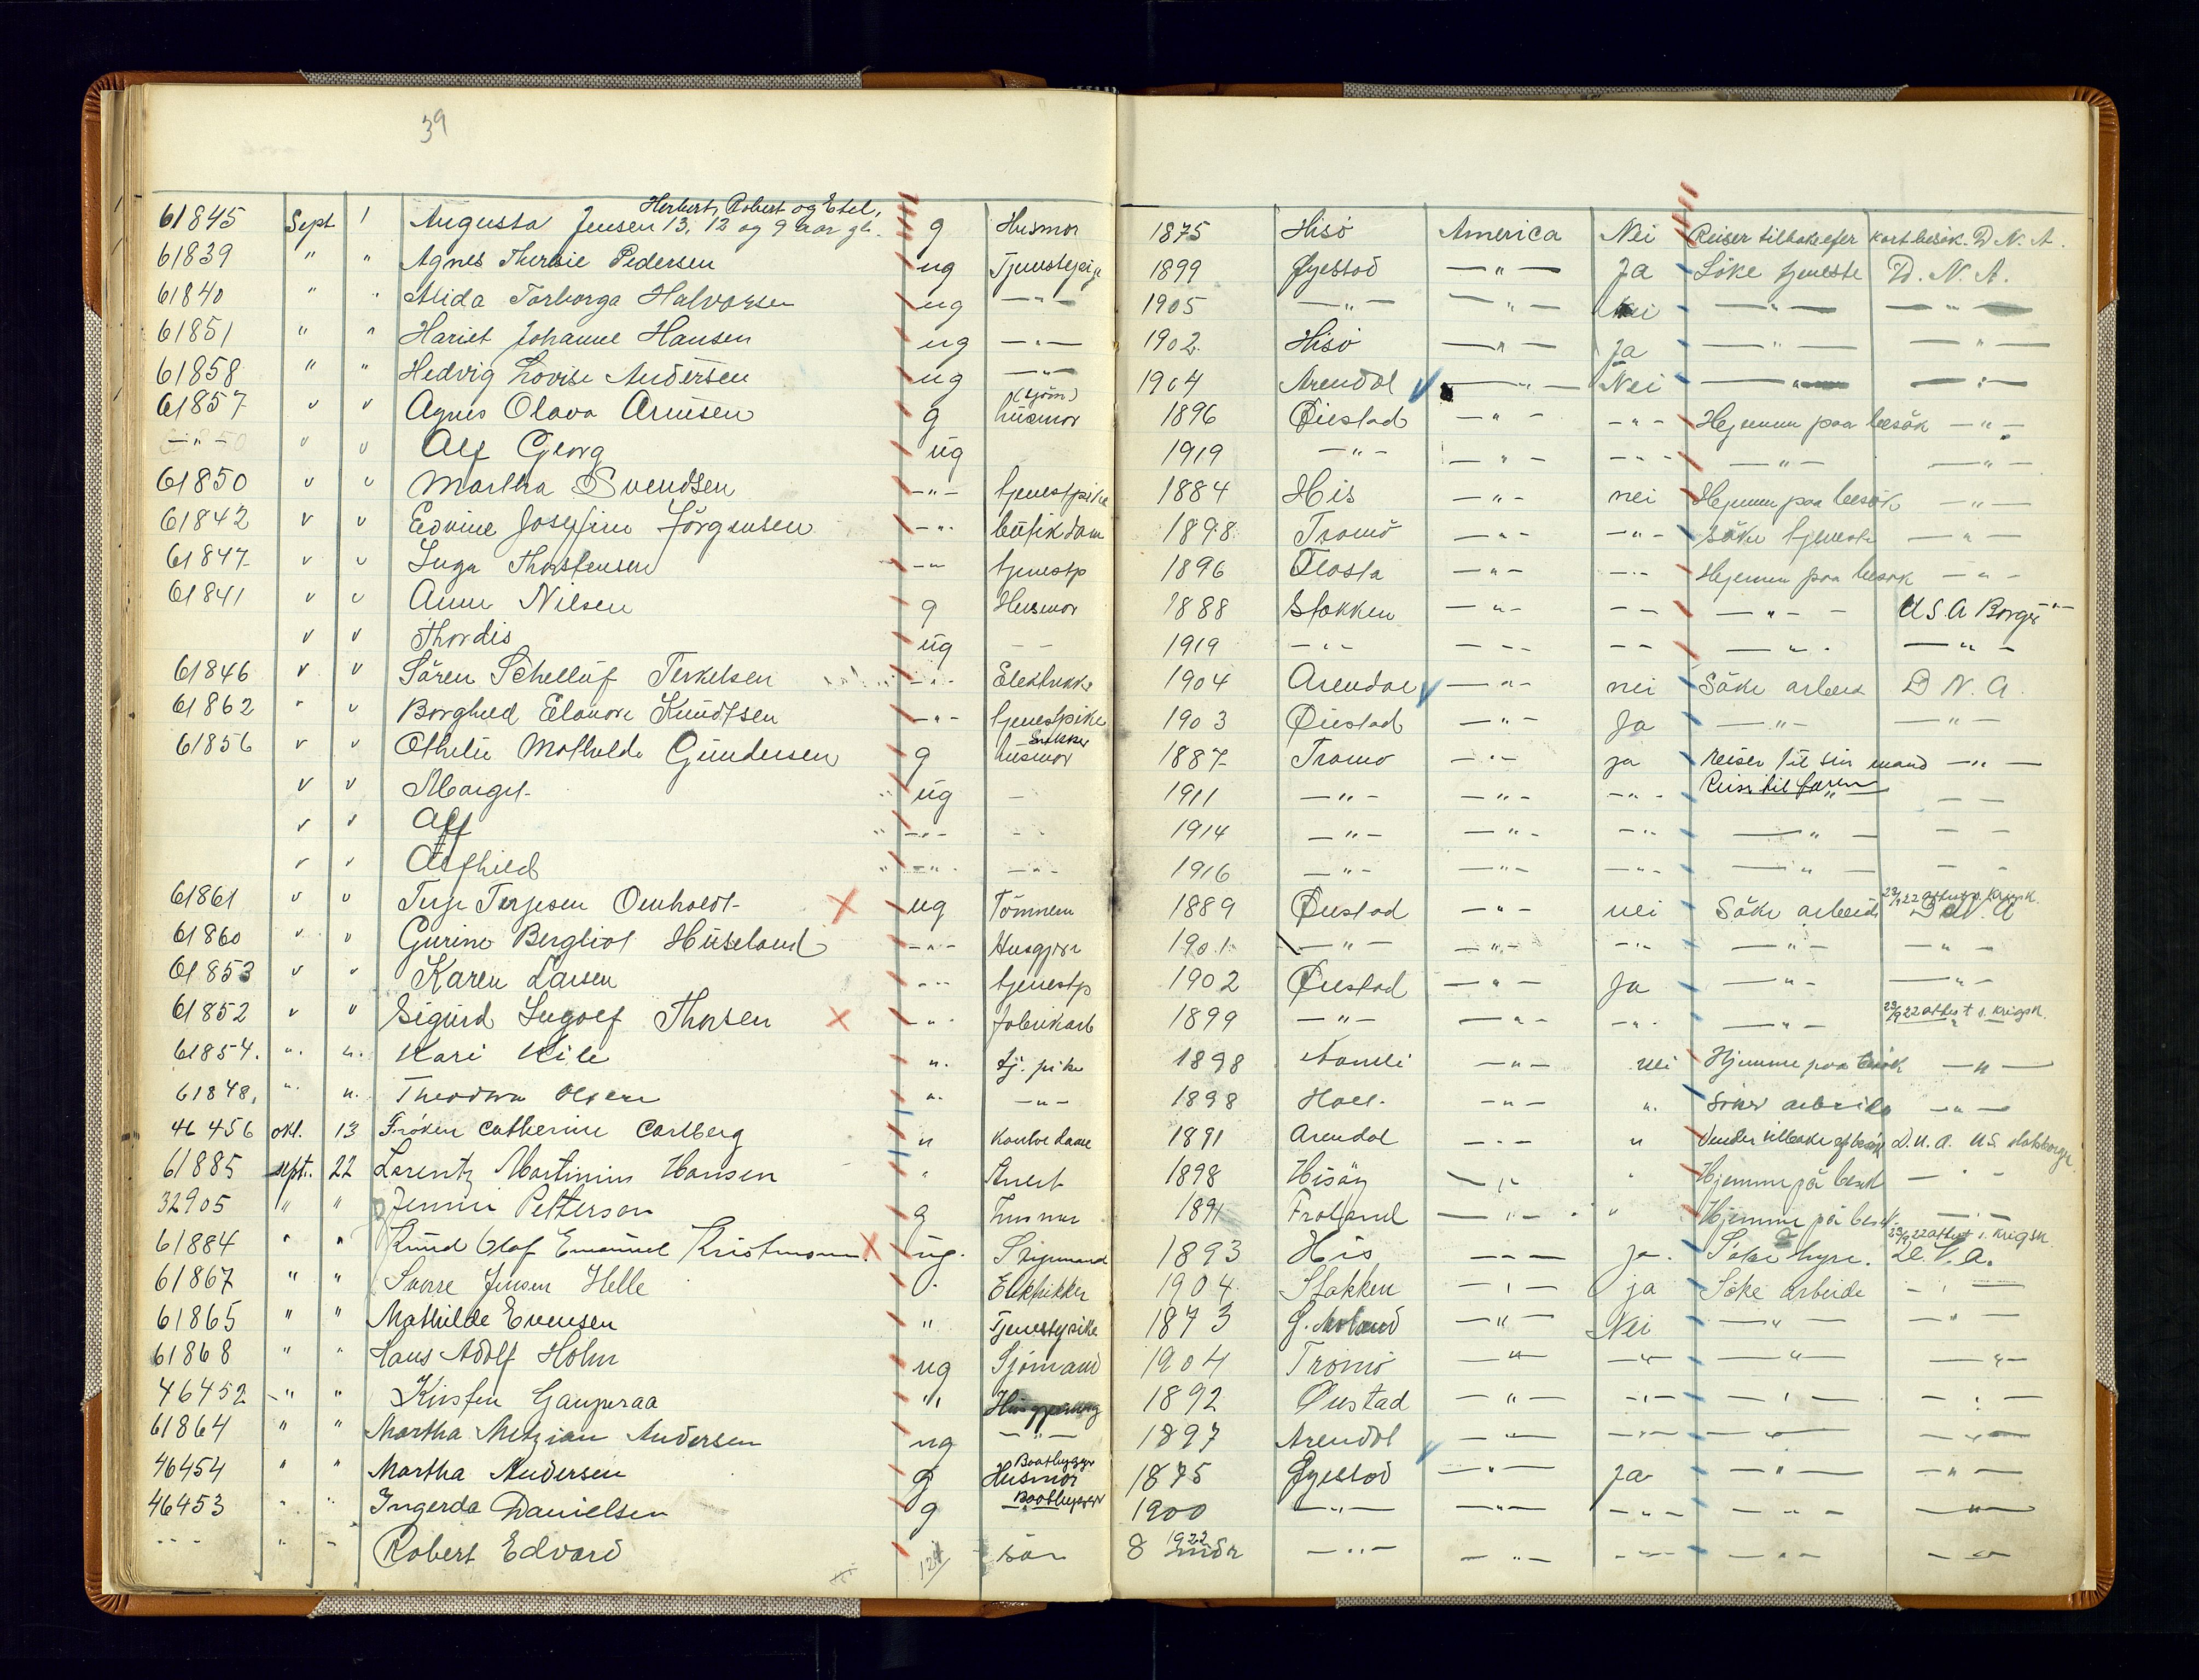 39
Herbert, Robert og Etel,
61845 Sept 1 Augusta Jensen 13, 12 og 9 aar gl. g Husmor 1875 Hisö America Nei Reiser tilbake efter kort besök. D. N. A.
61839 " " Agnes Theresie Pedersen ug Tjenestepige 1899 Øyestad — " — Ja Söke tjeneste D. N. A.
61840 " " Alida Torborga Halvorsen ug — " — 1905 — " — — " — Nei — " — — " —
61851 " " Hariet Johanne Hansen ug — " — 1902 Hisö — " — Ja — " — — " —
61858 " " Hedvig Lovise Andersen ug — " — 1904 Arendal — " — Nei — " — — " —
61857 " " Agnes Olava Arnesen g (sjöm) husmor 1896 Öiestad — " — — " — Hjemme paa besök — " —
— " — " " Alf Georg ug 1919 — " — — " — — " — — " — — " —
61850 " " Martha Svendsen — " — tjenestpike 1884 His — " — nei Hjemme paa besök — " —
61842 " " Edvine Josefine Jörgensen — " — butikdame 1898 Tromö — " — — " — söke tjeneste — " —
61847 " " Inga Thorstensen — " — tjenestp 1896 Flosta — " — — " — Hjemme paa besök — " —
61841 " " Anne Nilsen g Husmor 1888 Stokken — " — — " — — " — U.S.A Borger — " —
" " Thordis ug — — 1919 — " — — " — — " — — " — — " —
61846 " " Sören Schelluf Terkelsen — " — Elektrikker 1904 Arendal — " — nei Söke arbeid D. N. A.
61862 " " Borghild Elonore Knudtsen — " — tjenestpike 1903 Öiestad — " — Ja — " — — " —
61856 " " Othelie Mathilde Gundersen g husmor 1887 Tromö — " — ja reiser til sin mand — " —
" " Margit ug — 1911 — " — — " — — " — Reiser til faren — —
" " Alf — " — — — 1914 — " — — " — — " — — " — — —
" " Asfhild — " — — " — 1916 — " — — " — — " — — " — — —
61861 " " Terje Terjesen Omholdt X ug Tömmerm 1889 Öiestad — " — nei Söke arbeid 23/9 22 attest s. Krigsk. D. N. A
61860 " " Gurine Bergliot Huseland — " — Husgjer 1901 — " — — " — — " — — " — — " —
61853 " " Karen Larsen — " — tjenestp 1902 Öiestad — " — Ja — " — — " —
61852 " " Sigurd Ingolf Thorsen X — " — fabrikarb 1899 — " — — " — — " — — " — 23/9 22 attest s. krigsk.
61854. " " Kari Kile " tj. pike 1898 Aamli — " — nei Hjemme paa besök — " —
61848. " " Theodora Olsen " — " — 1898 Holt — " — " Söker arbeide — " —
46456 okt. 13 Fröken Catherine Carlberg " Kontordame 1891 Arendal — " — " Vender tilbake ef besök D. N. A. U.S. statsborger
61885 sept. 22 Lorentz Martinius Hansen " 1898 Hisöy — " — " Hjemme på besök — " —
32905 " " Jenni Petterson g husmor 1891 Froland — " — " Hjemme på besök — " —
61884 " " Knud Olaf Emanuel Kristmann X ug. Stymand 1893 His — " — ja. Söke hyre. 23/9 22 attest s. krigsk. D. N. A.
61867 " " Sverre Jensen Helle Elektrikker 1904 Stokken — " — ja Söke arbeide — " —
61865 " " Mathilde Evensen " Tjenestepike 1873 G. Moland — " — Nei — " — — " —
61868 " " Hans Adolf Holm ug Sjömand 1904 Tromö — " — — " — — " — — " —
46452 " " Kirsten Gauperaa " 1892 Öiestad — " — — " — — " — — " —
61864 " " Martha Andersen ug — " — 1897 Arendal — " — — " — — " — — " —
46454 " " Martha Andersen g Baatbygger Husmor 1875 Øyestad — " — Ja — " — — " —
46453 " " Ingerda Danielsen g Baatbygger — " — 1900 — " — — " — — " — — " — — " —
- - - " " Robert Edvard sön 8 mdr 1922 — " — — " — — " — — " — — " —